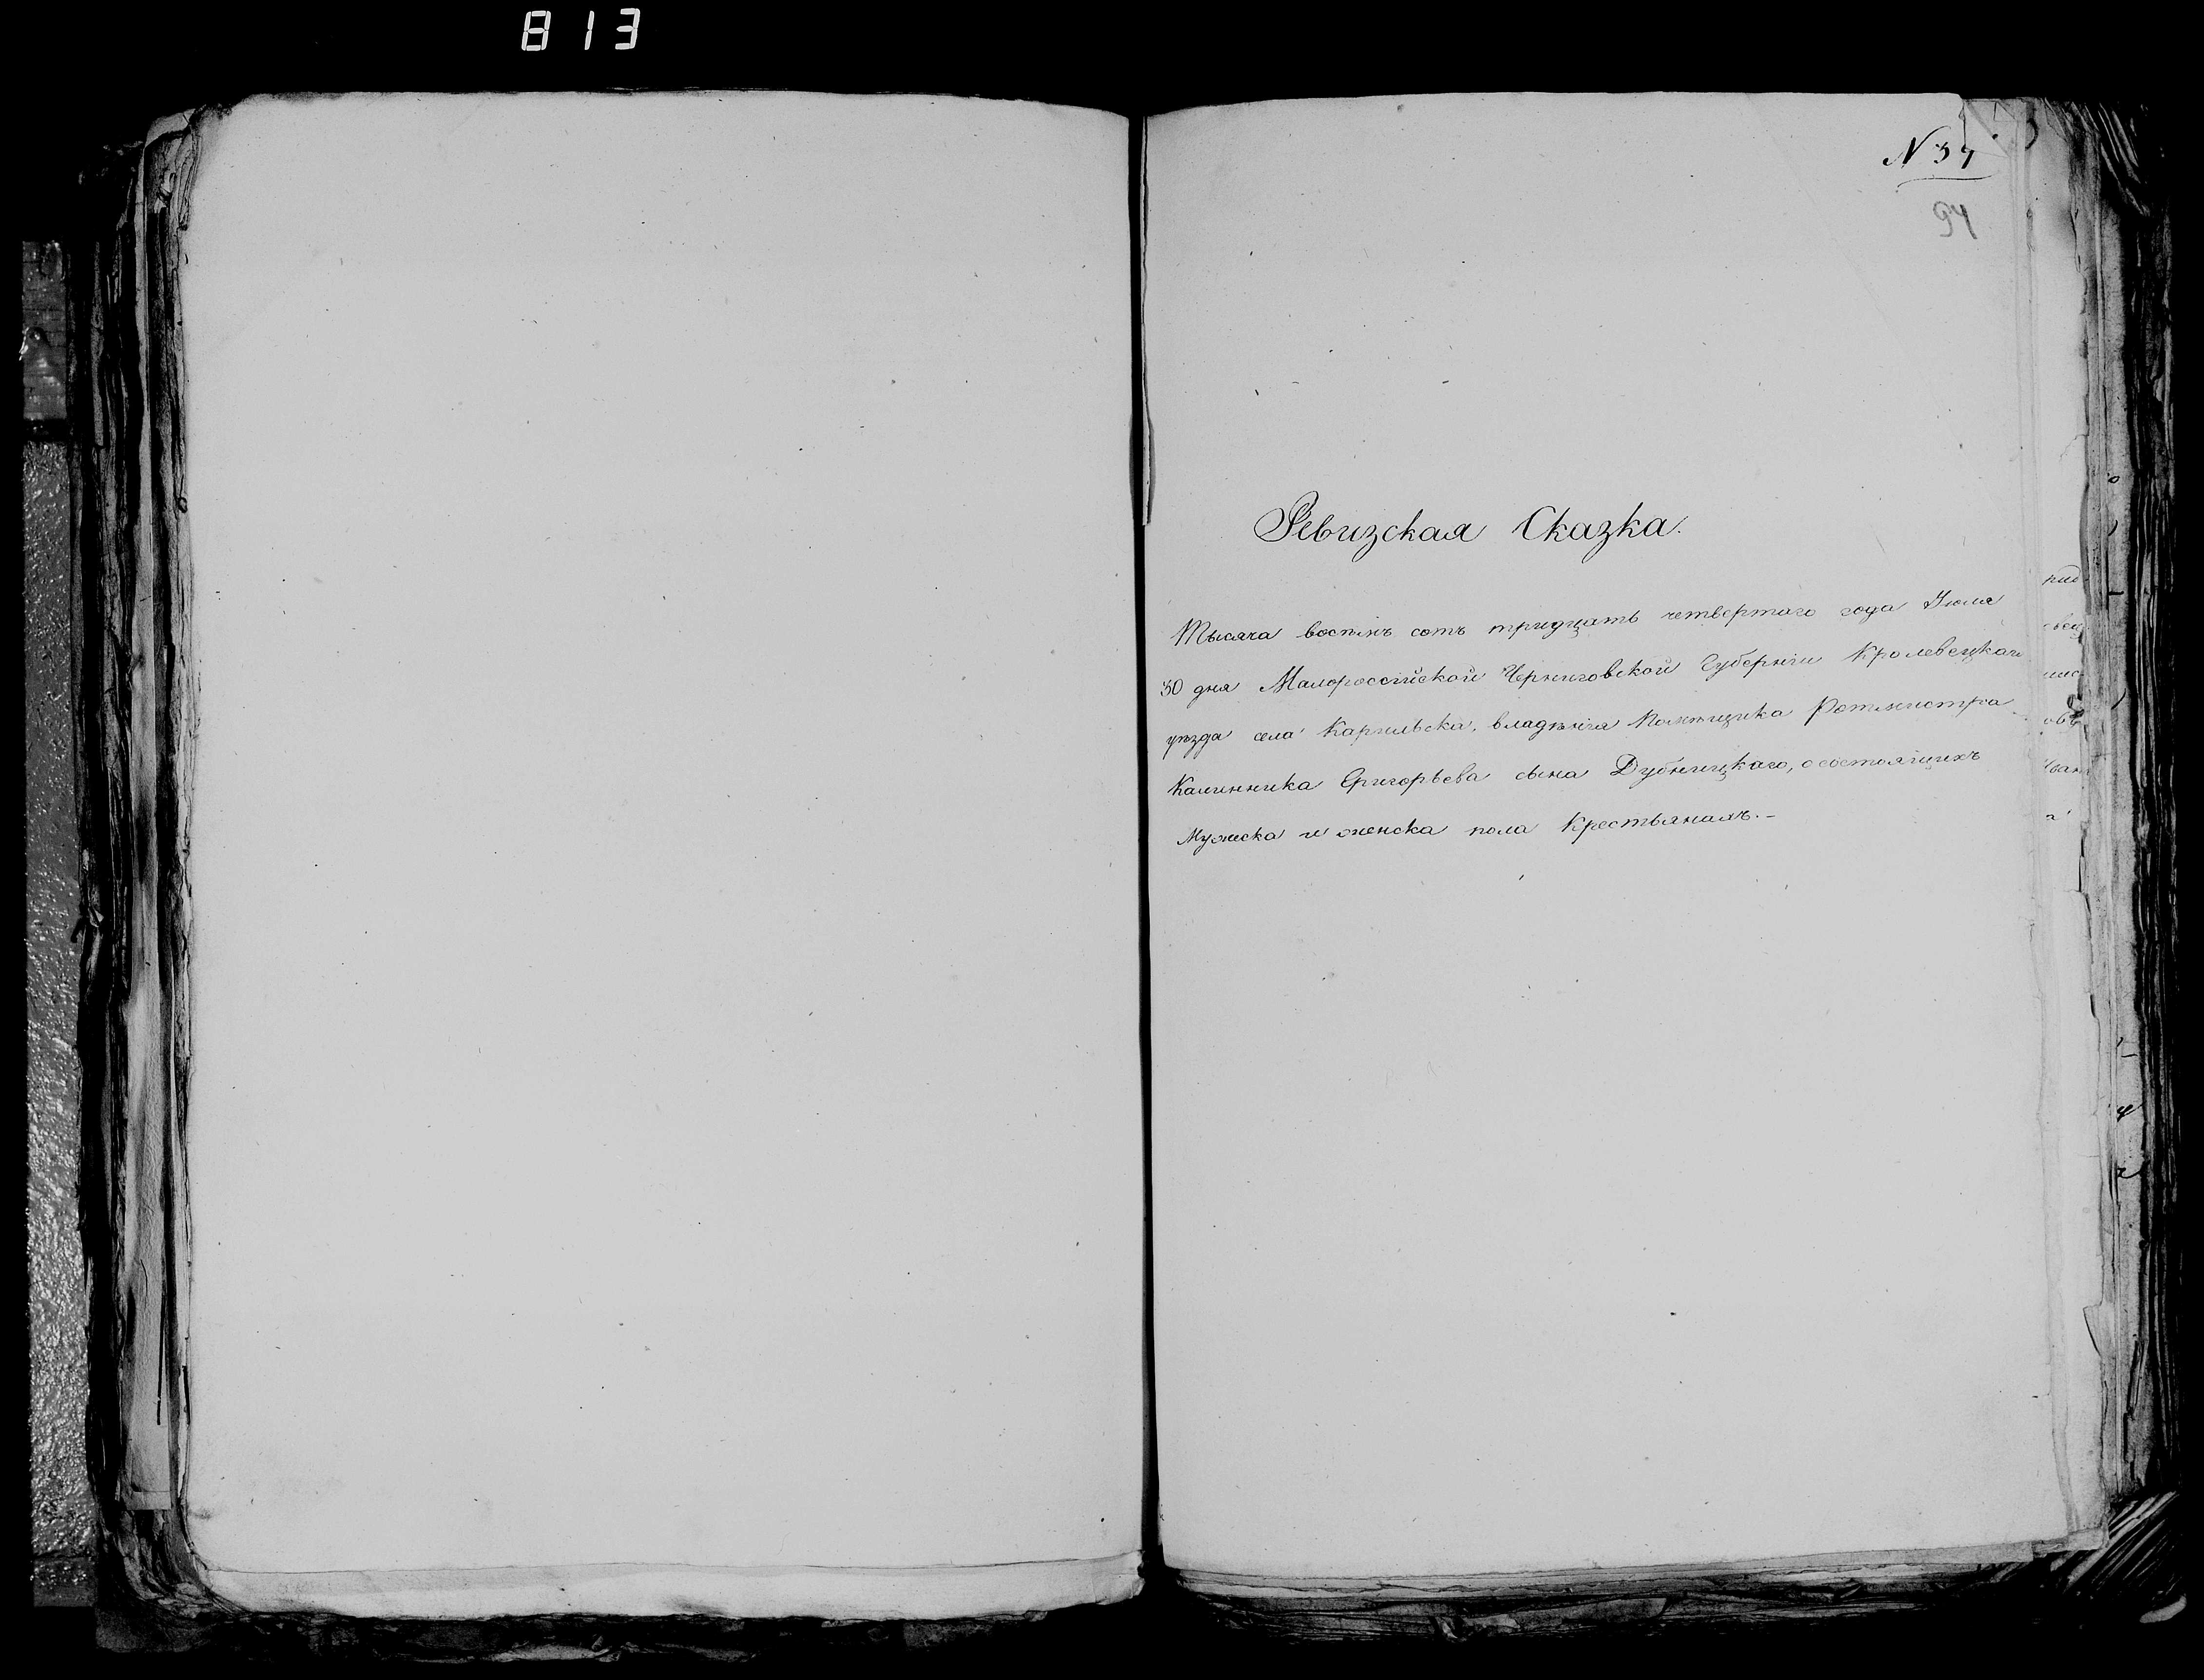 813
N 34
94
Ревизская Сказка.
Тысяча восемь сотъ тридцать четвертаго года Июля
30 дня Малороссійской Черниговской Губерніи Кролевецкаго
уѣзда села Карильска, владѣнія Помѣщика Ротмистра
Калинника Григорьева сына Дубницкаго, о состоящихъ
Мужеска и женска пола Крестьянахъ.-